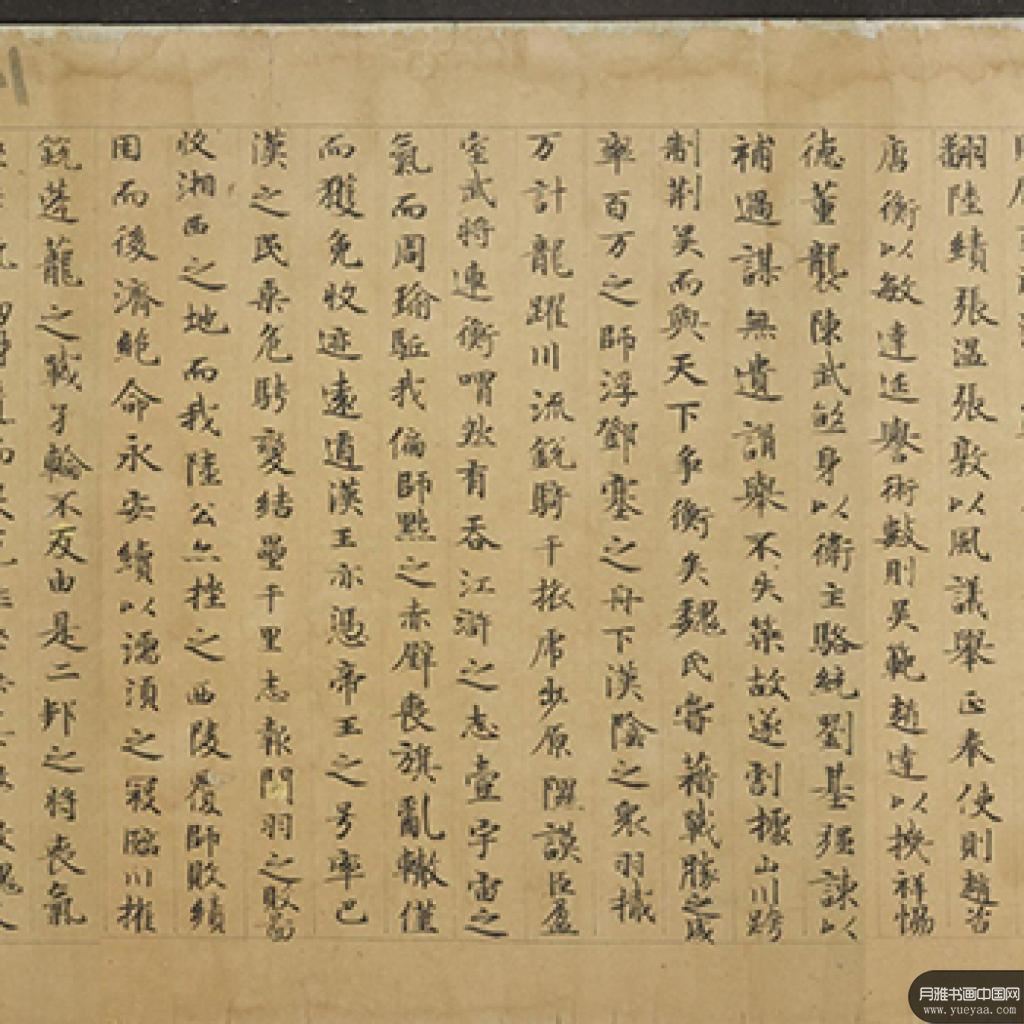 翻陸績張溫張敦以風議舉正奉使則趙咨
唐衡以敏達延譽術數則吳範趙達以祥協
德董襲陳武煞身以衛主駱統劉基强諫以
補過謀無遺谞舉不失策故遂割據山川跨
制荆吴而與天下争衡矣魏氏甞藉戰勝之威
率百万之師浮鄧塞之舟下漢陰之衆羽檝
万計龍躍川流銳騎千旅虎步原隰謨臣盈
室武將連衡喟然有吞江滸之志壹宇宙之
氣而周瑜駈我偏師黜之赤壁喪旗亂轍僅
而獲免收迹遠遁漢王亦憑帝王之号率巴
漢之民乘危騁變結壘千里志報關羽之敗啚
收湘西之地而我陸公亦挫之西陵覆師敗績
困而後濟絶命永安續以濡須之寇臨川摧
銳蓬蘢之戰孑輪不反由是二邦之將喪氣
月雅书画中国网
www.yueyaa.com